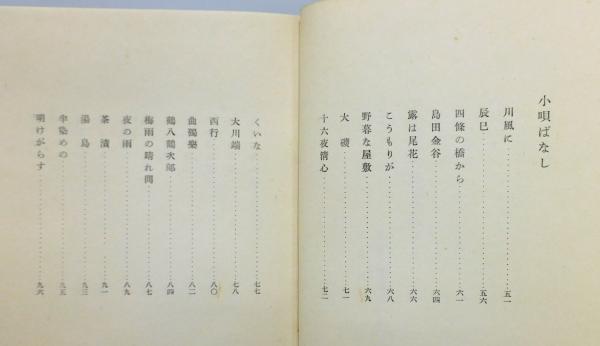 小唄ばなし
川風に…………………五一
辰巳…………………五六
四條の橋から…………………六一
島田金谷…………………六四
露は尾花…………………六六
こうもりが…………………六八
野暮な屋敷…………………六九
大磯…………………七一
十六夜清心…………………七二
くいな…………………七七
大川端…………………七八
西行…………………八〇
曲獨樂…………………八二
鶴八鶴次郎…………………八四
梅雨の晴れ間…………………八七
夜の雨…………………八九
茶漬…………………九一
湯島…………………九三
半染めの…………………九五
明けがらす…………………九六